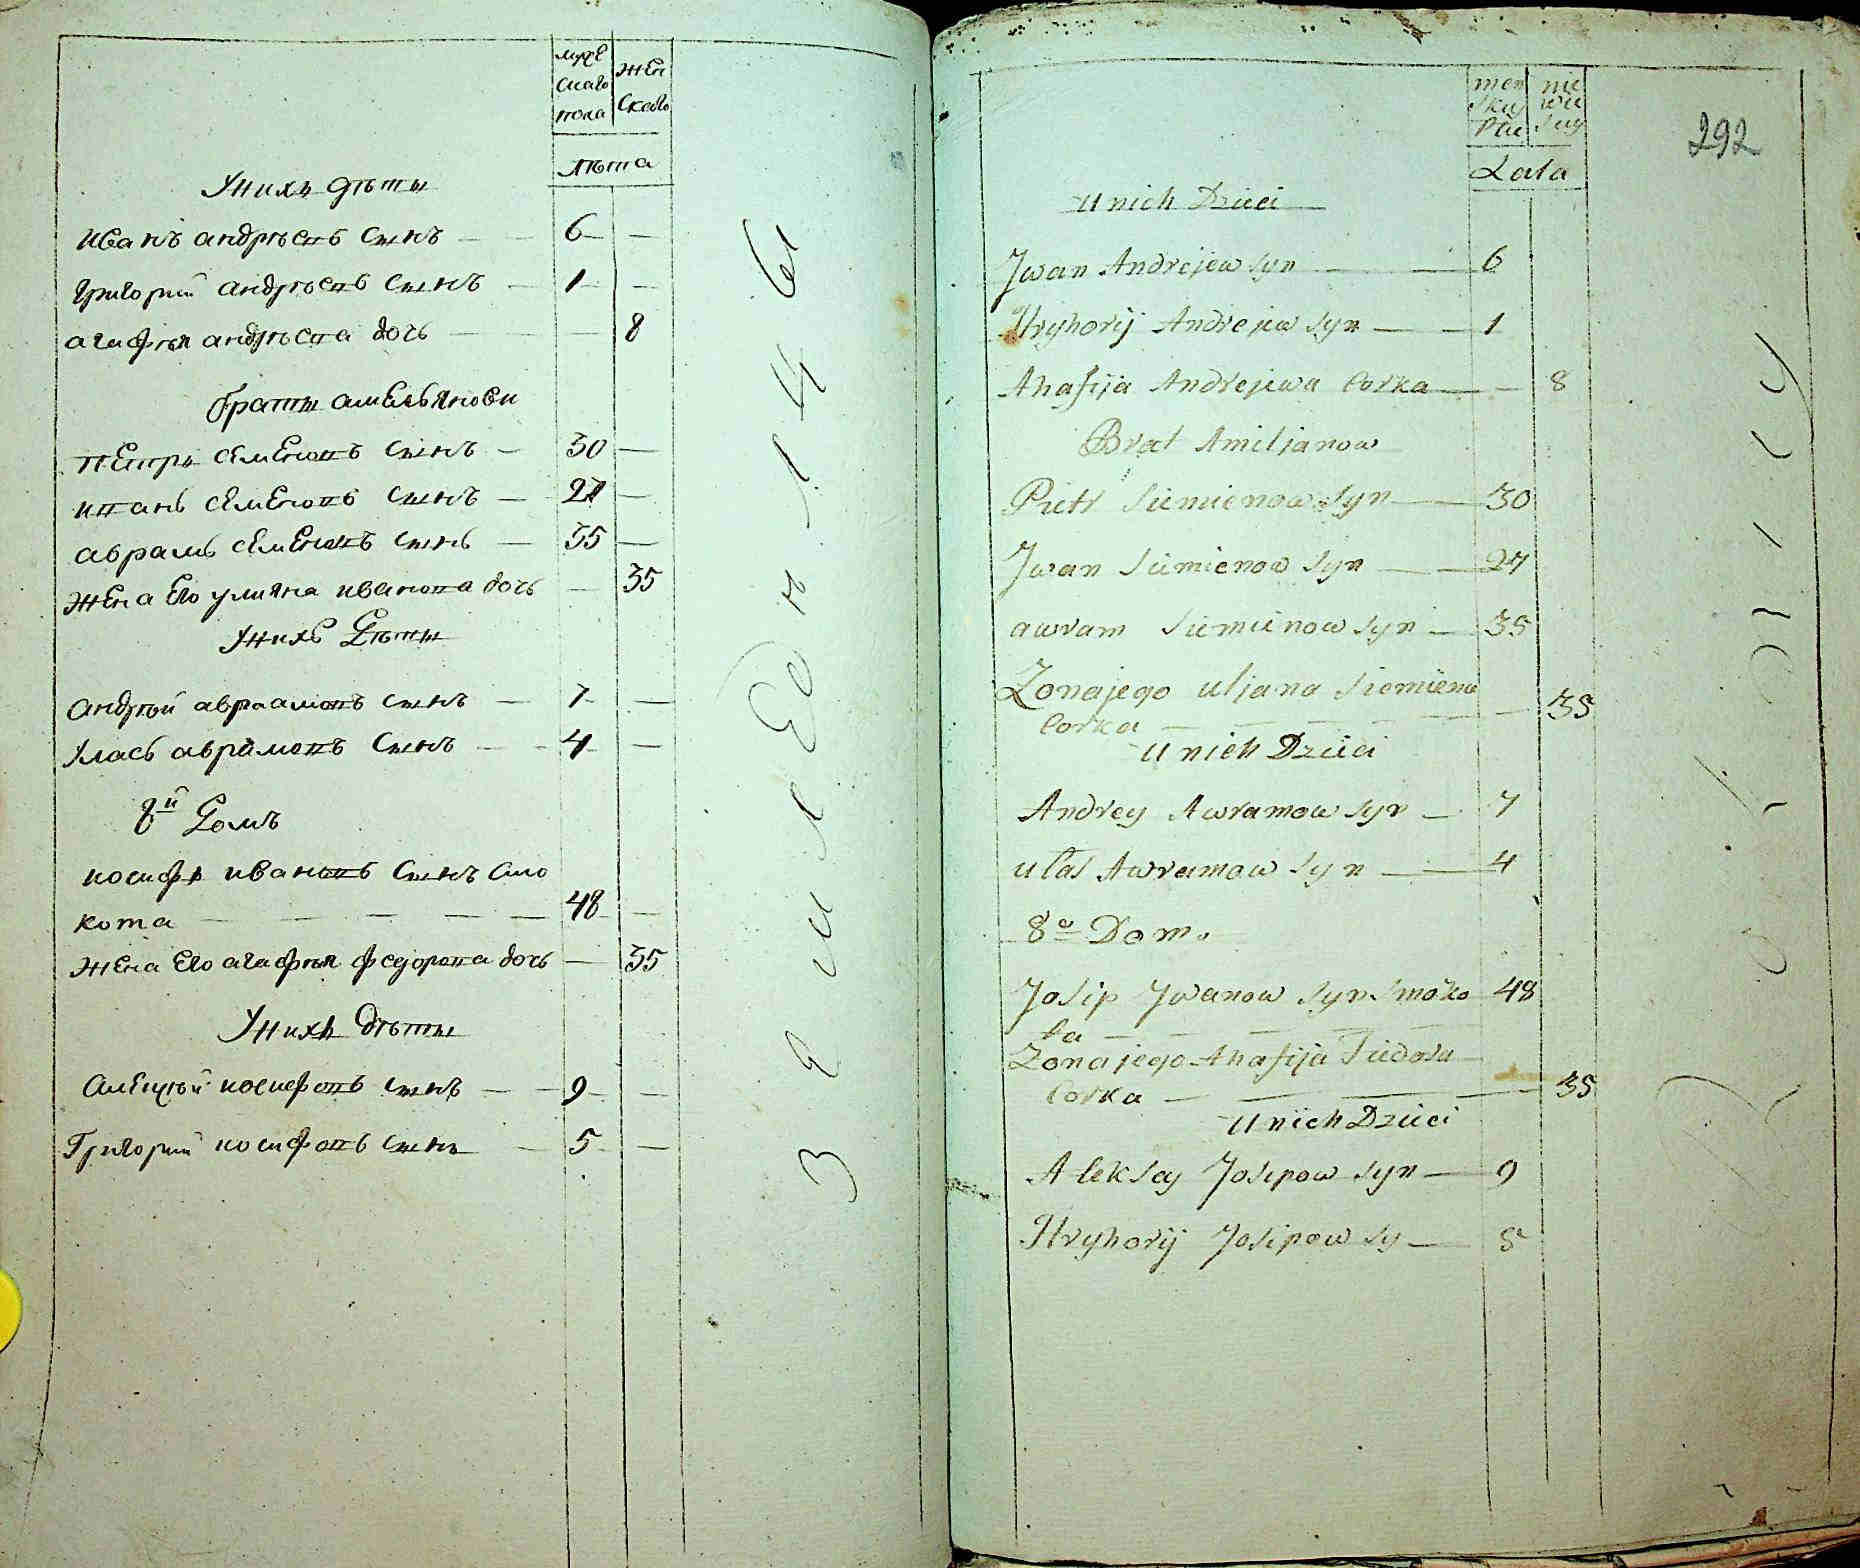 муже
скаго
пола
жен
скаго
лѣта
Унихъ дѣти
иванъ андрѣевъ синъ — 6 —
григорий андрѣевъ синъ — 1 —
агафия андрѣева дочь — — 8
браты амельянови
петръ семеновъ синъ — 30 —
иванъ семеновъ синъ — 27 —
аврамъ семеновъ синъ — 35 —
жена его улияна иванова дочь — 35
Унихъ Дѣти
андрѣй авраамовъ синъ — 7 —
Уласъ аврамовъ синъ — 4 —
8й Домъ
иосифъ ивановъ синъ смо
кота — 48 —
жена его агафия федорова дочь — 35
Унихъ дѣти
алексѣй иосифовъ синъ — 9 —
Григорий иосифовъ синъ — 5 —
292
men
skey
Płci
nie
wie
sciey
Lata
u nich Dzieci
Jwan Andrejew syn — 6
Hryhorij Andrejew syn — 1
Ahafija Andrejewa Corka — 8
Brat Amiljanow
Pietr Siemienow syn — 30
Jwan Siemienow syn — 27
awram Siemienow syn — 35
Zonajego uljana Siemiena
Corka — 35
u nich Dzieci
Andrey Awramow syn — 7
ułas Awramow syn — 4
8o Dom.
Josip Jwanow syn Smoko 48
ta —
Zona jego Ahafija Fiedora
Corka — 35
u nich Dzieci
Aleksey Josipow syn — 9
Hryhorij Josipow sy — 5